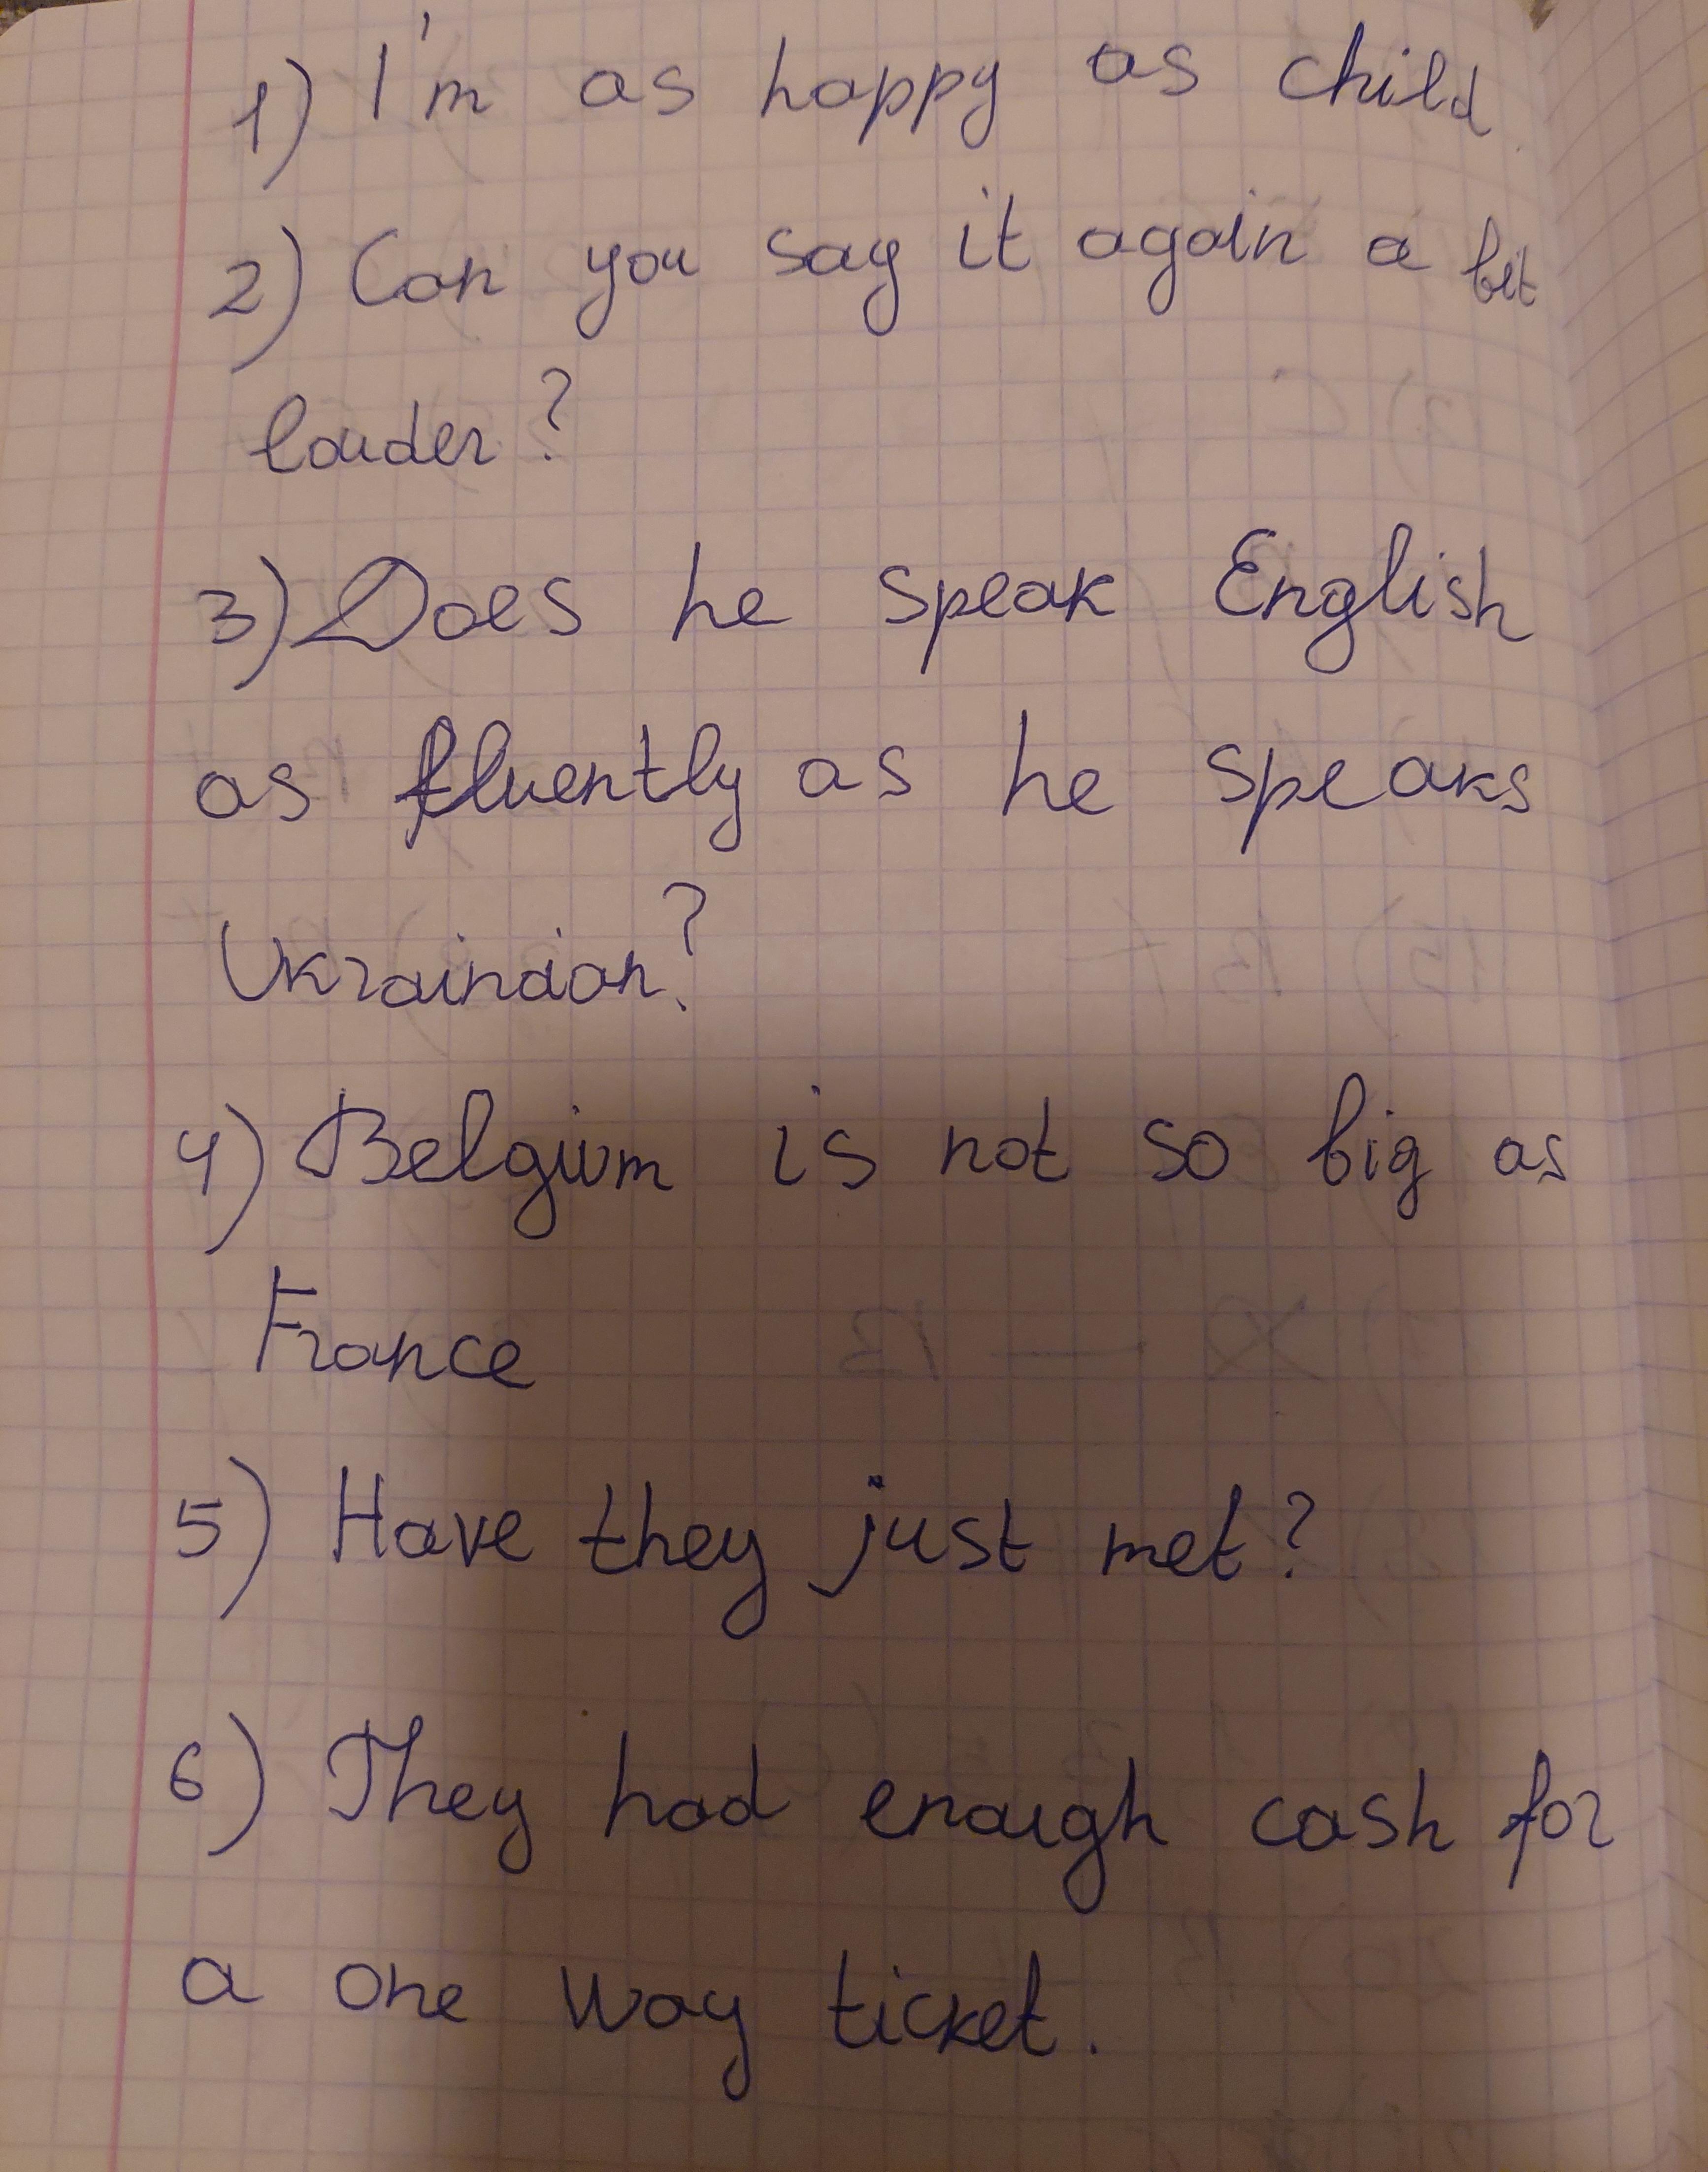 1) I'm as happy as child
2) Can you say it again a bit
louder?
3) Does he speak English
as fluently as he speaks
Ukrainian?
4) Belgium is not so big as
France
5) Have they just met?
6) They had enough cash for
a one way ticket.